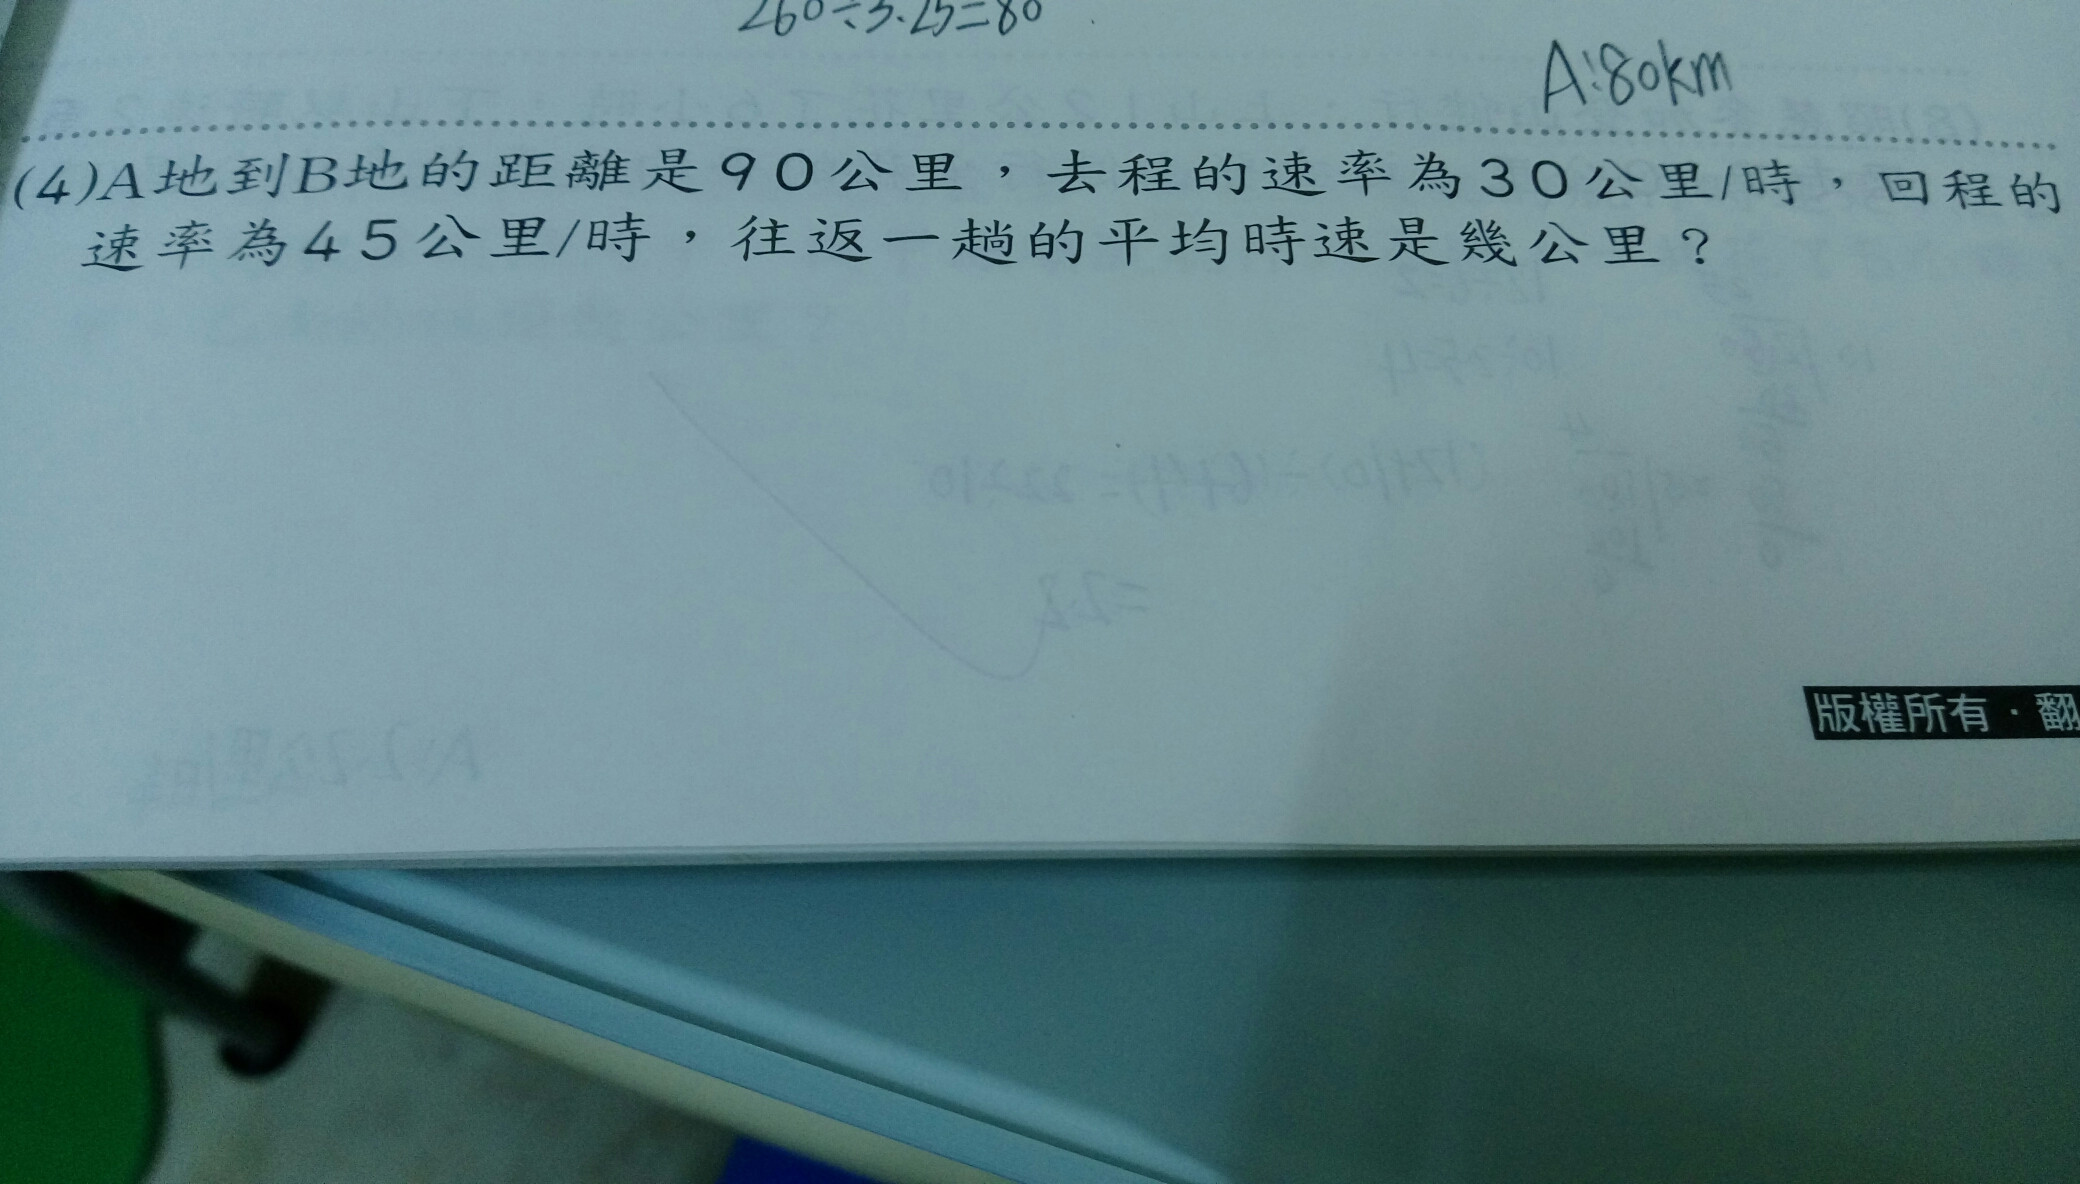 260÷3.25=80
A:80km
(4)A地到B地的距離是90公里，去程的速率為30公里/時，回程的
速率為45公里/時，往返一趟的平均時速是幾公里？
版權所有·翻